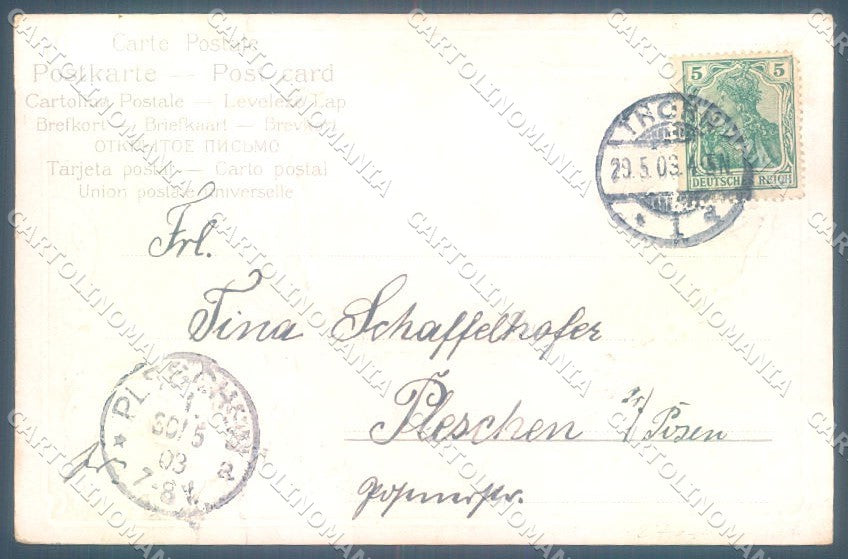 Carte Postale
Postkarte — Post card
Cartolina Postale — Levelező-Lap
Brefkort — Briefkaart — Brevkort
ОТКРЫТОЕ ПИСЬМО
Tarjeta postal — Carto postal
Union postale universelle
5 5
DEUTSCHES REICH
29.5.03. 4-5N
* 1 a
Frl.
Tina Schaffelhofer
Pleschen / Posen
PLESCHEN
30/5
03
7-8V.
* a
CARTOLINOMANIA